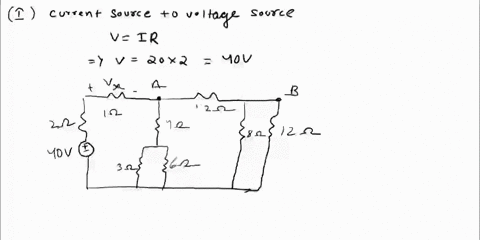 (I) current source to voltage source
V = IR
=> V = 20x2 = 40V
+ Vx - A B
1Ω 2Ω
2Ω 8Ω 12Ω
40V 3Ω 6Ω